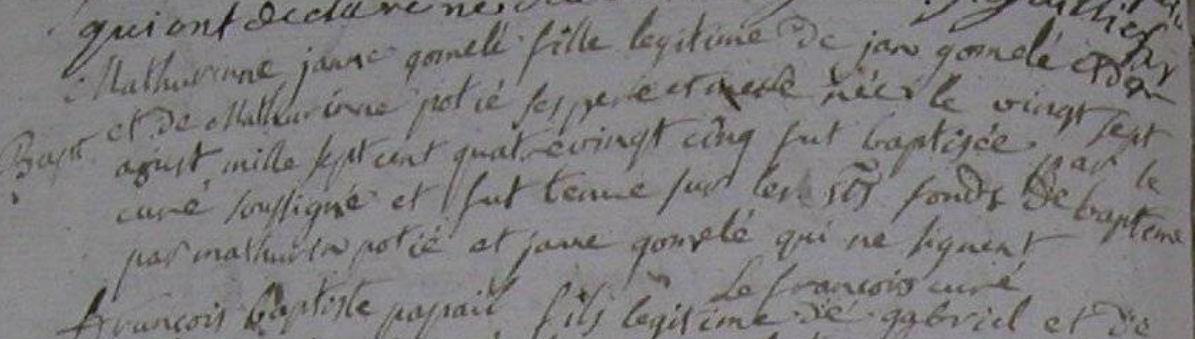 qui ont declaré ne
Mathurinne janne gomelé fille legitime de jan gomelé
Bapt. et de Mathurinne potié ses pere et mere née le vingt sept
agust mille sept cent quatrevingt cinq fut baptisée par le
curé soussigné et fut tenue sur les sts fonds de bapteme
par mathurin potié et janne gomelé qui ne signent
Le francois curé
francois baptiste papail fils legitime de gabriel et de